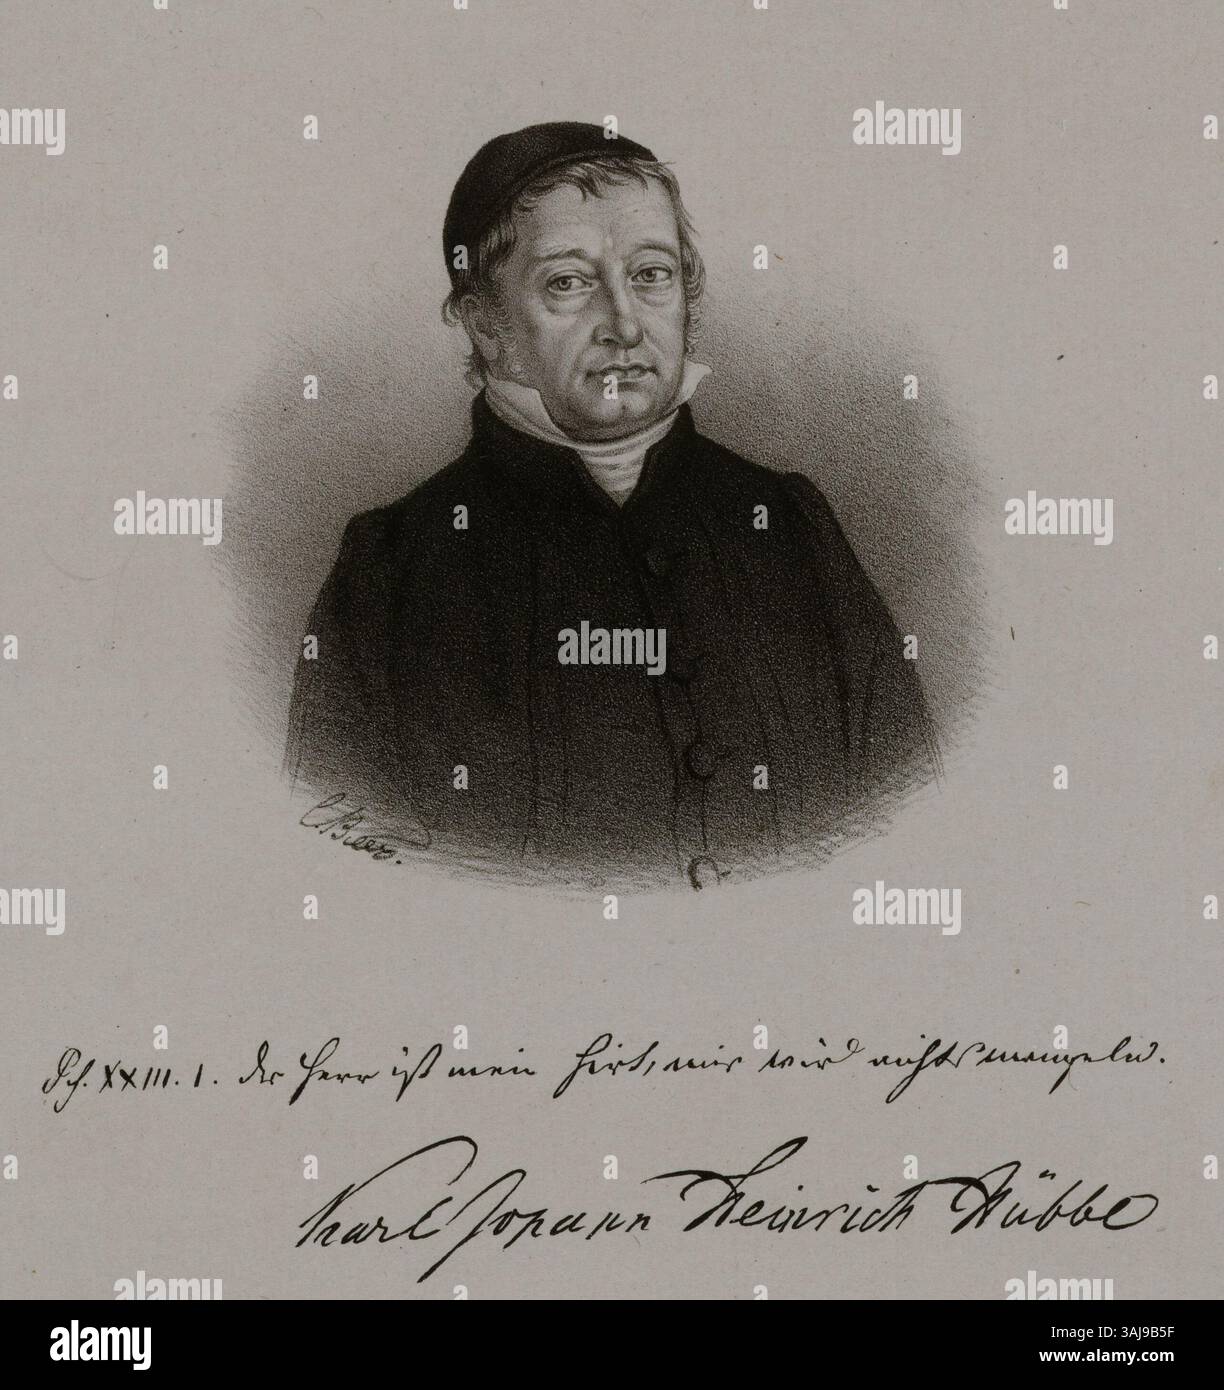 C Beer.
Ps. XXIII. 1. Der Herr ist mein Hirt, mir wird nichts mangeln.
Karl Johann Heinrich Hübbe
alamy
Image ID: 3AJ9B5F
www.alamy.com